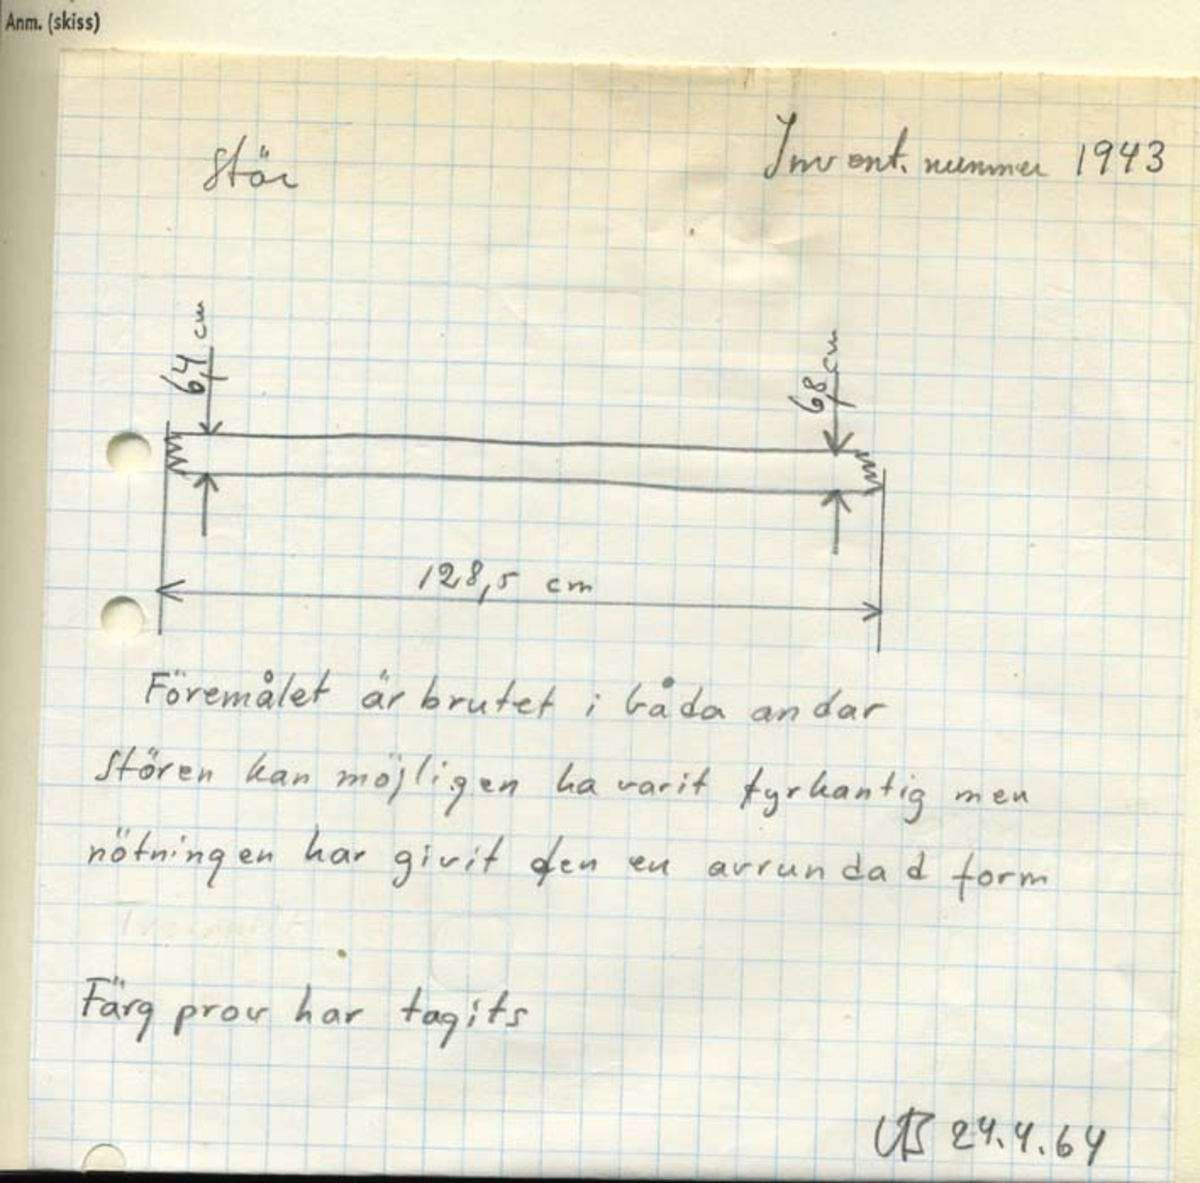 Anm. (skiss)
Stör
Invent. nummer 1943
6,4 cm
6,8 cm
128,5 cm
Föremålet är brutet i båda andar
Stören kan möjligen ha varit fyrkantig men
nötningen har givit den en avrundad form
Färg prov har tagits
24.4.64